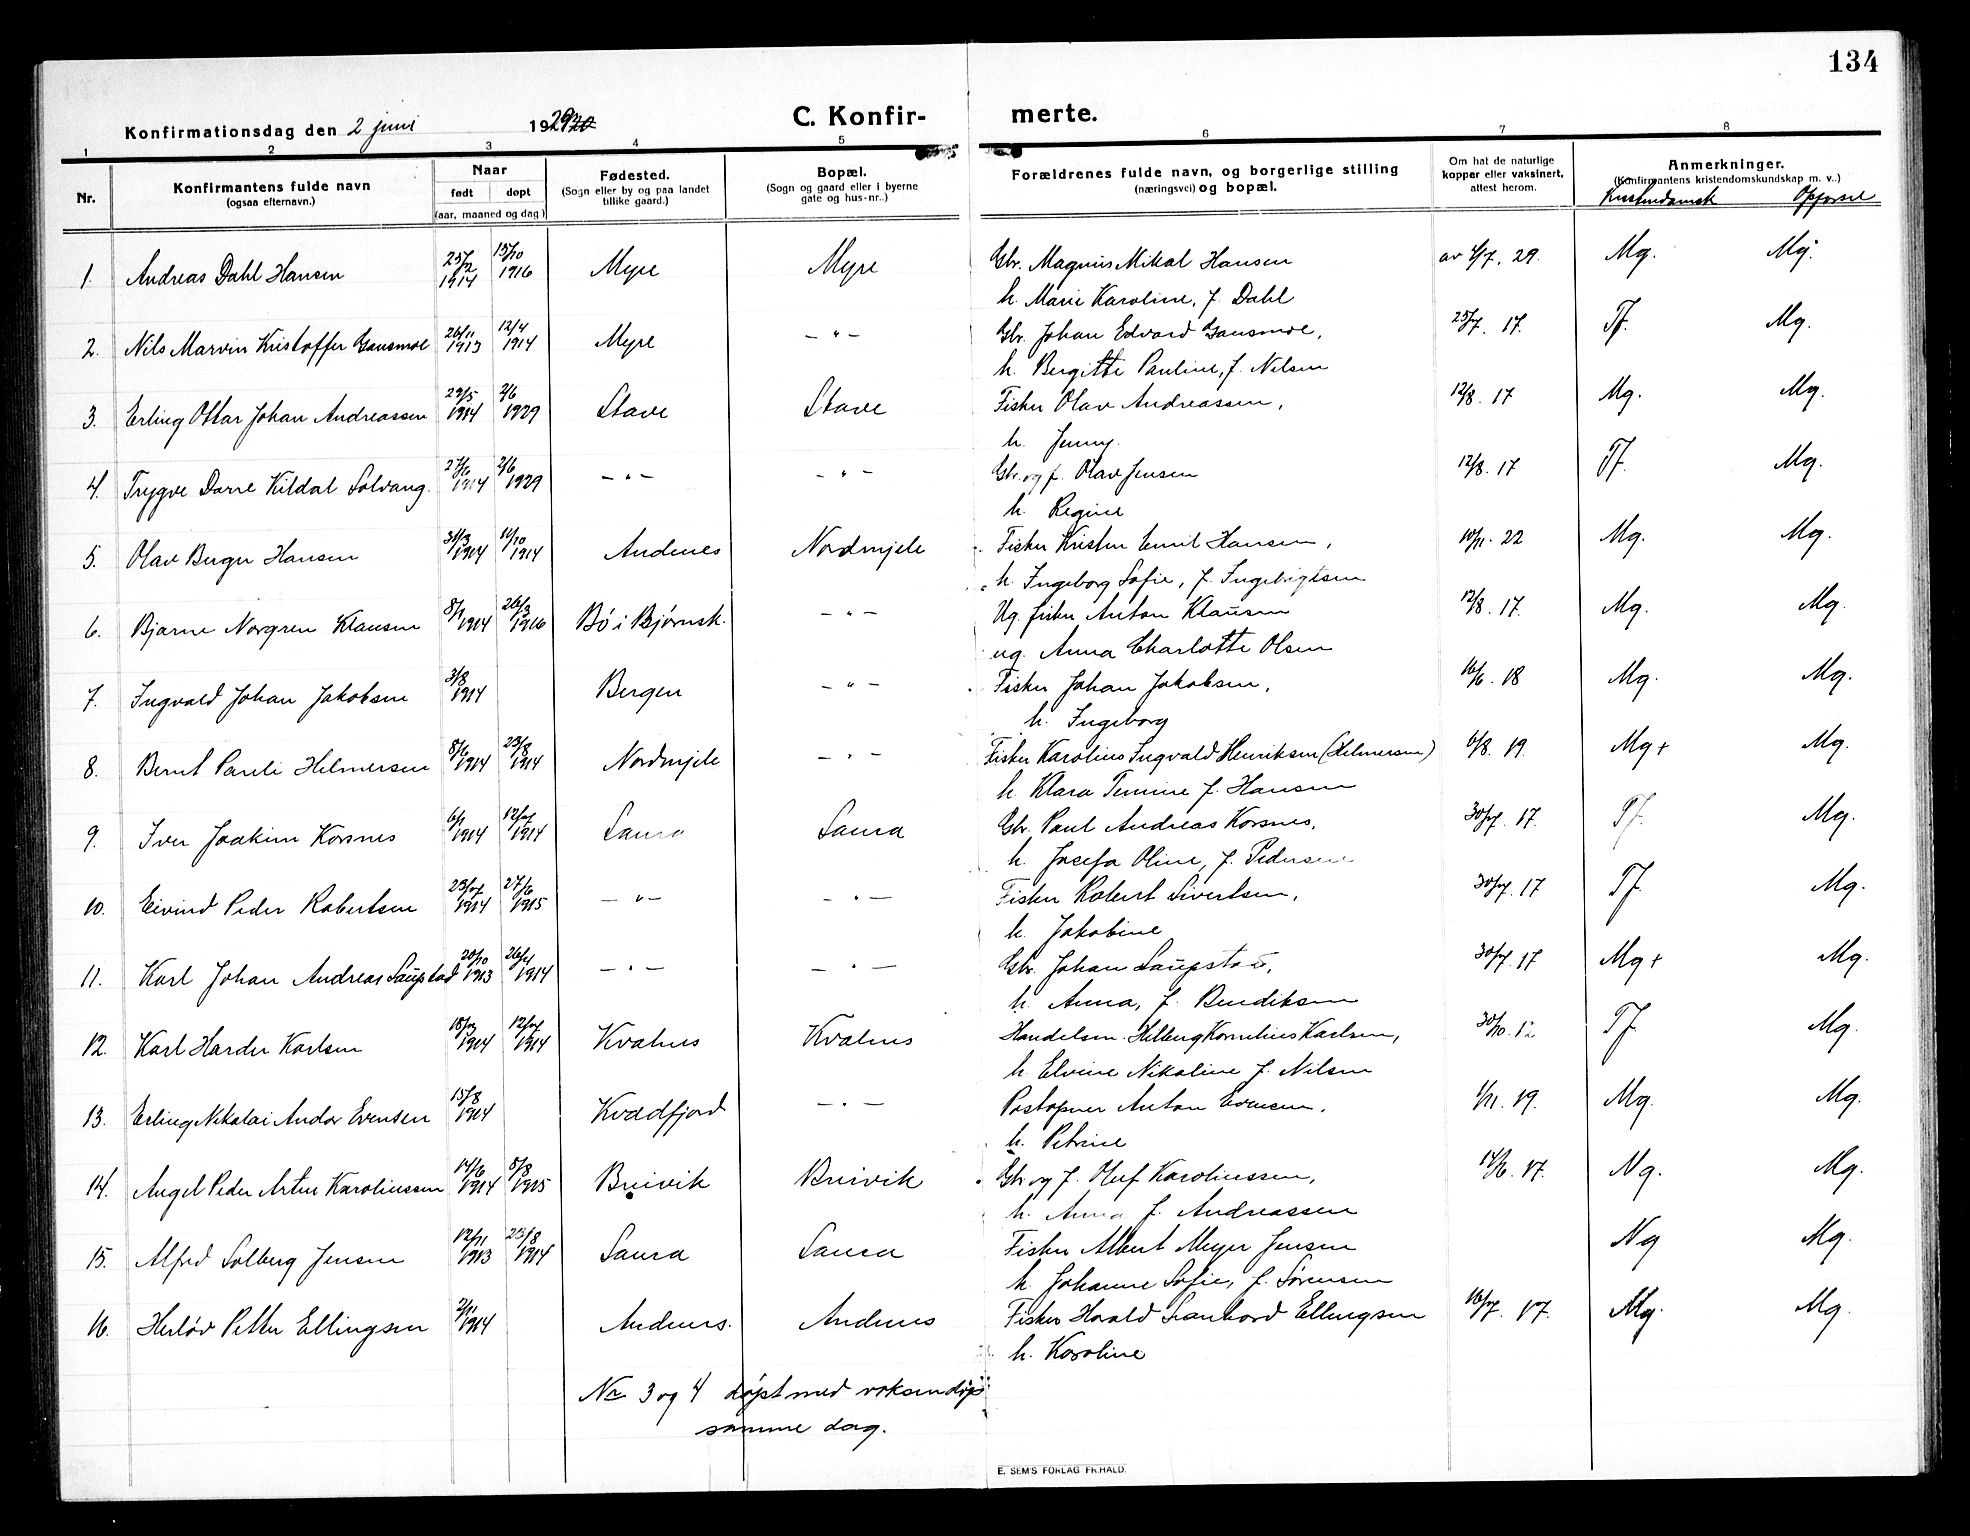 134
Konfirmationsdag den 2 juni 1929
C. Konfirmerte.
1 2 3 4 5 6 7 8
Nr.
Konfirmantens fulde navn
(ogsaa efternavn.)
Naar
født døpt
(aar, maaned og dag)
Fødested.
(Sogn eller by og paa landet
tillike gaard.)
Bopæl.
(Sogn og gaard eller i byerne
gate og hus-nr.)
Forældrenes fulde navn, og borgerlige stilling
(næringsvei) og bopæl.
Om hat de naturlige
kopper eller vaksinert,
attest herom.
Anmerkninger.
(Konfirmantens kristendomskundskap m. v.)
Kristendomsk Opførsel
1. Andreas Dahl Hansen 25/2 1914 15/10 1916 Myre Myre Gbr. Magnus Mikal Hansen av 4/7. 29. Mg. Mg.
h. Marie Karoline, f. Dahl
2. Nils Marvin Kristoffer Gausmoe 26/11 1913 12/4 1914 Myre - " - Gbr. Johan Edvard Gausmoe, 25/7. 17. Tf. Mg.
h. Bergitte Pauline, f. Nilsen
3. Erling Ottar Johan Andreassen 29/5 1914 2/6 1929 Stave Stave Fisker Olav Andreassen, 12/8. 17 Mg. Mg.
h. Jenny.
4. Trygve Dorre Kildal Solvang. 27/6 1914 2/6 1929 - " - - " - Gbr. og f. Olav Jensen 12/8. 17 Tf. Mg.
h. Regine
5. Olav Berger Hansen 31/3 1914 11/10 1914 Andenes Nordmjele Fisker Kristen Emil Hansen, 10/11. 22 Mg. Mg.
h. Ingeborg Sofie, f. Ingebrigtsen
6. Bjarne Norgren Klausen 8/1 1914 26/3 1916 Bø i Bjørnsk. - " - Ug. fisker Anton Klausen 12/8. 17. Mg. Mg.
ug. Anna Charlotte Olsen
7. Ingvald Johan Jakobsen 3/8 1914 Bergen - " - Fisker Johan Jakobsen, 16/6. 18 Mg. Mg.
h. Ingeborg
8. Bernt Pareli Helmersen 8/6 1914 23/8 1914 Nordmjele - " - Fisker Karolius Ingvald Henriksen (Helmersen) 6/8. 19. Mg+ Mg.
h. Klara Temine f. Hansen
9. Iver Joakim Korsnes 6/1 1914 12/7 1914 Saura Saura Gbr. Paul Andreas Korsnes, 30/7. 17. Tf. Mg.
h. Josefa Oline, f. Pedersen
10. Eivind Peder Robertsen 23/7 1914 27/6 1915 - " - - " - Fisker Robert Sivertsen, 30/7. 17 Tf. Mg.
h. Jakobine
11. Karl Johan Andreas Saupstad 20/10 1913 26/4 1914 - " - - " - Gbr. Johan Saupstad, 30/7. 17 Mg+ Mg.
h. Anna, f. Bendiksen
12. Karl Harder Karlsen 1914 12/7 1914 Kvalnes Kvalnes Handelsm. Kornelius Karlsen, 30/10. 12 Tf. Mg.
h. Elvine Nikoline f. Nilsen
13. Erling Nikolai Andor Evensen 15/8 1914 Kvædfjord - " - Postopner Anton Evensen, 1/11. 19. Mg. Mg.
h. Petrine
14. Angel Peder Artur Karoliussen 14/6 1914 8/8 1915 Breivik Breivik Gbr og f. Oluf Karoliussen, 14/6. 17. Ng. Mg.
h. Anna f. Andreassen
15. Alfred Solberg Jensen 12/11 1913 23/8 1914 Saura Saura Fisker Albert Meyer Jensen Ng Mg.
h. Johanne Sofie, f. Sørensen
16. Herløv Petter Ellingsen 2/11 1914 Andenes. Andenes Fisker Harald Ellingsen 16/7. 17. Mg. Mg.
h. Karoline
Nr 3 og 4 døpt med voksendåp
samme dag.
E. SEM'S FORLAG FR.HALD.